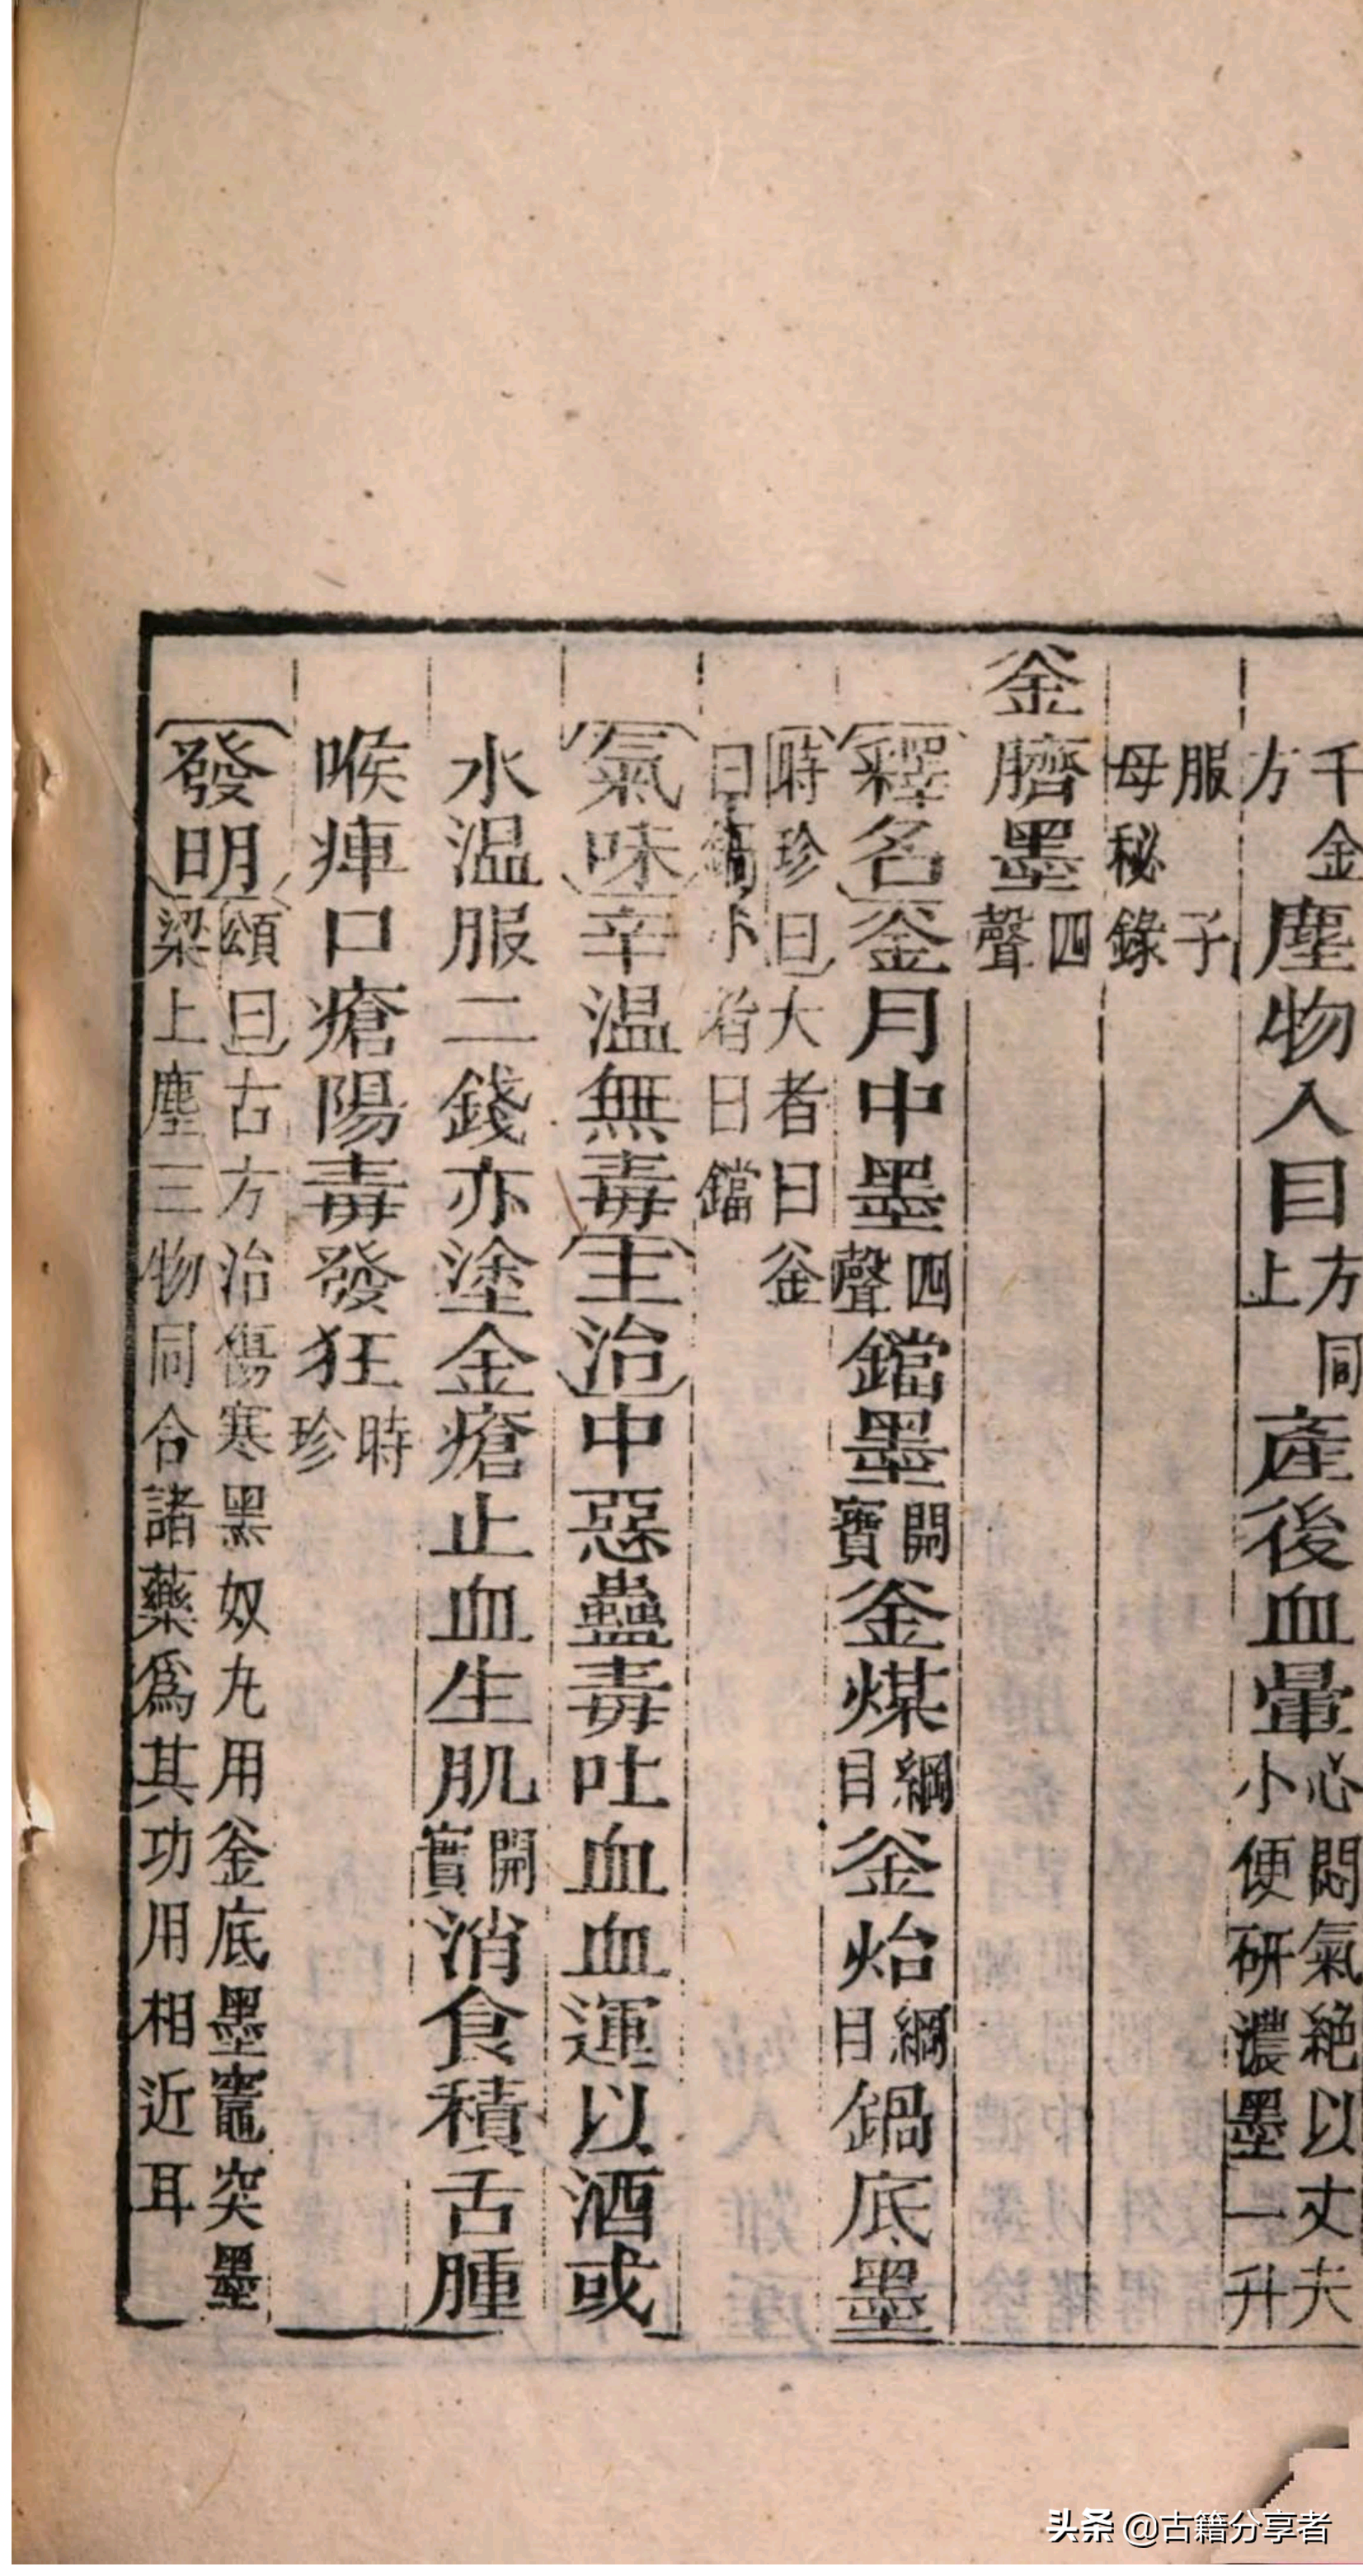 千金方塵物入目方同上產後血暈心悶氣絶以丈夫小便研濃墨一升
服子母秘錄
釜臍墨四聲
釋名釜月中墨四聲鐺墨開寶釜煤綱目釜炲綱目鍋底墨
時珍曰大者曰釜曰鍋小者曰鐺
氣味辛温無毒主治中惡蠱毒吐血血運以酒或
水温服二錢亦塗金瘡止血生肌開寶消食積舌腫
喉痺口瘡陽毒發狂時珍
發明頌曰古方治傷寒黑奴丸用釜底墨竈突墨梁上塵三物同合諸藥爲其功用相近耳
头条 @古籍分享者